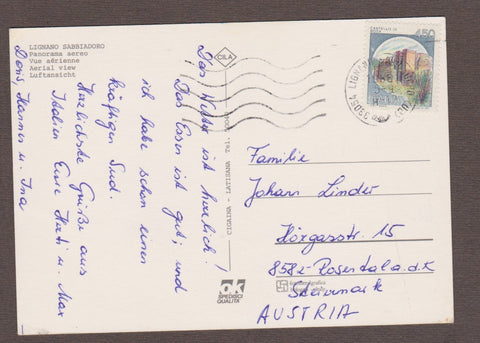 LIGNANO SABBIADORO
Panorama aereo
Vue aérienne
Aerial view
Luftansicht
CILA
450
33054 LIGNANO
Das Wetter ist herrlich!
Das Essen ist gut; und
ich habe schon einen
kräftigen Sud.
Herzlichste Grüße aus
Italien Eure Herti u. Max
Doris, Hannes u. Ina
CICAINA - LATISANA - Tel.
Familie
Johann Linder
Hörgasstr. 15
8582-Rosental a.d.K
Steiermark
AUSTRIA
OK
SPEDISCI
QUALITÀ